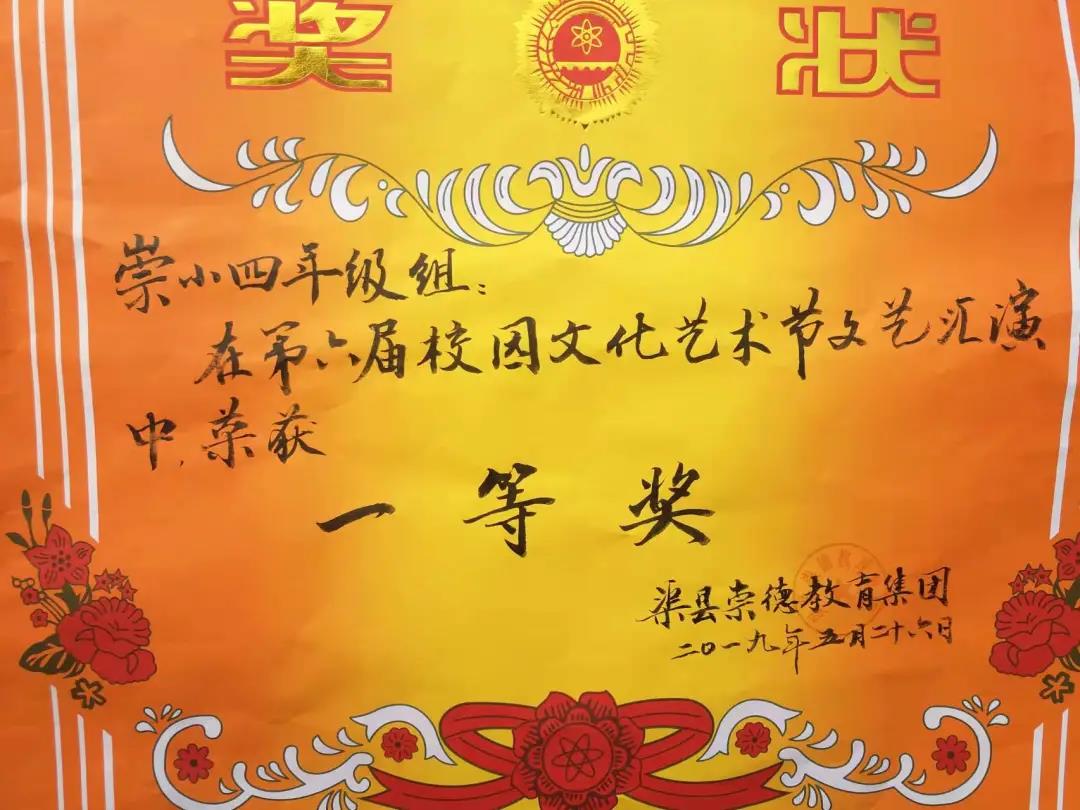 奖状
崇小四年级组：
在第六届校园文化艺术节文艺汇演
中，荣获
一等奖
渠县崇德教育集团
二〇一九年五月二十六日